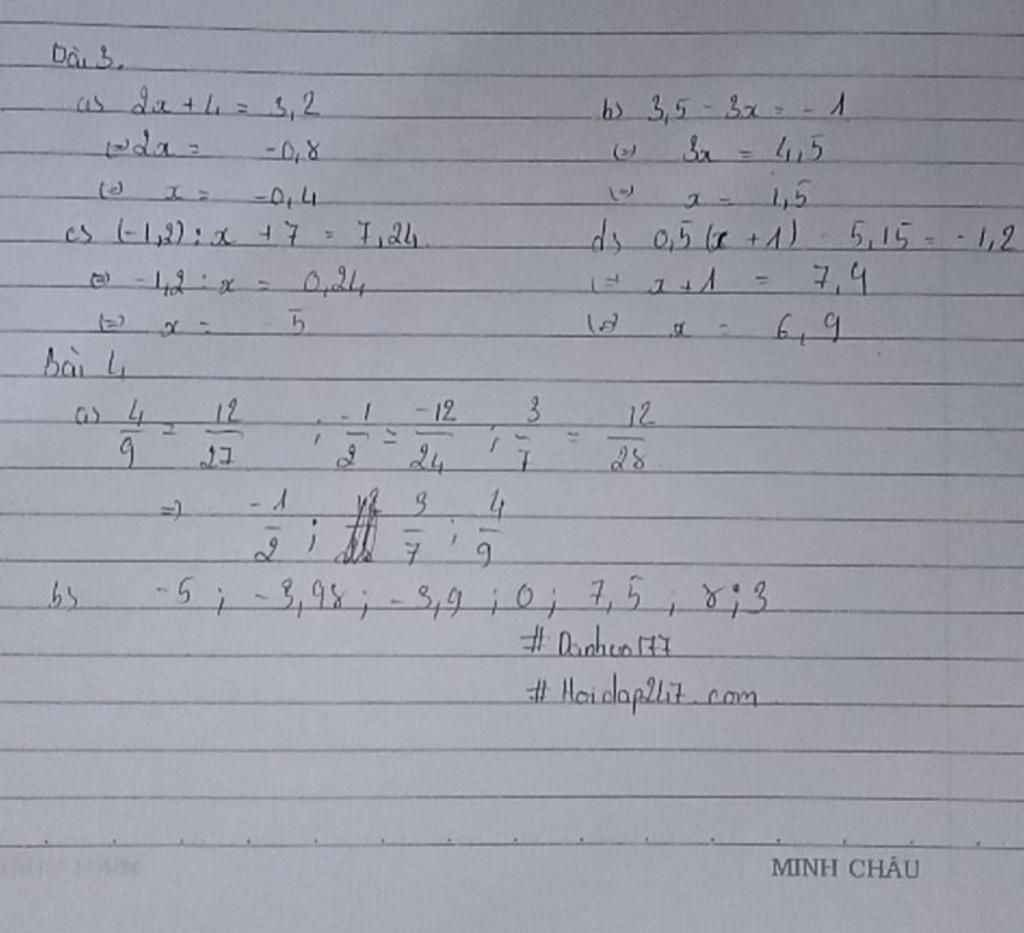 Bài 3.
a) 2x + 4 = 3,2 b) 3,5 - 3x = - 1
(=) 2x = -0,8 (=) 3x = 4,5
(=) x = -0,4 (=) x = 1,5
c) (-1,2) : x + 7 = 7,24 d) 0,5(x + 1) - 5,15 = -1,2
(=) -1,2 : x = 0,24 (=) x + 1 = 7,9
(=) x = - 5 (=) x = 6,9
Bài 4
a) 4/9 = 12/27 ; -1/2 = -12/24 ; 3/7 = 12/28
=) -1/2 ; 3/7 ; 4/9
b) -5 ; -3,98 ; -3,9 ; 0 ; 7,5 ; 8 ; 3
# Danhcn177
# Hoidap247.com
MINH CHÂU